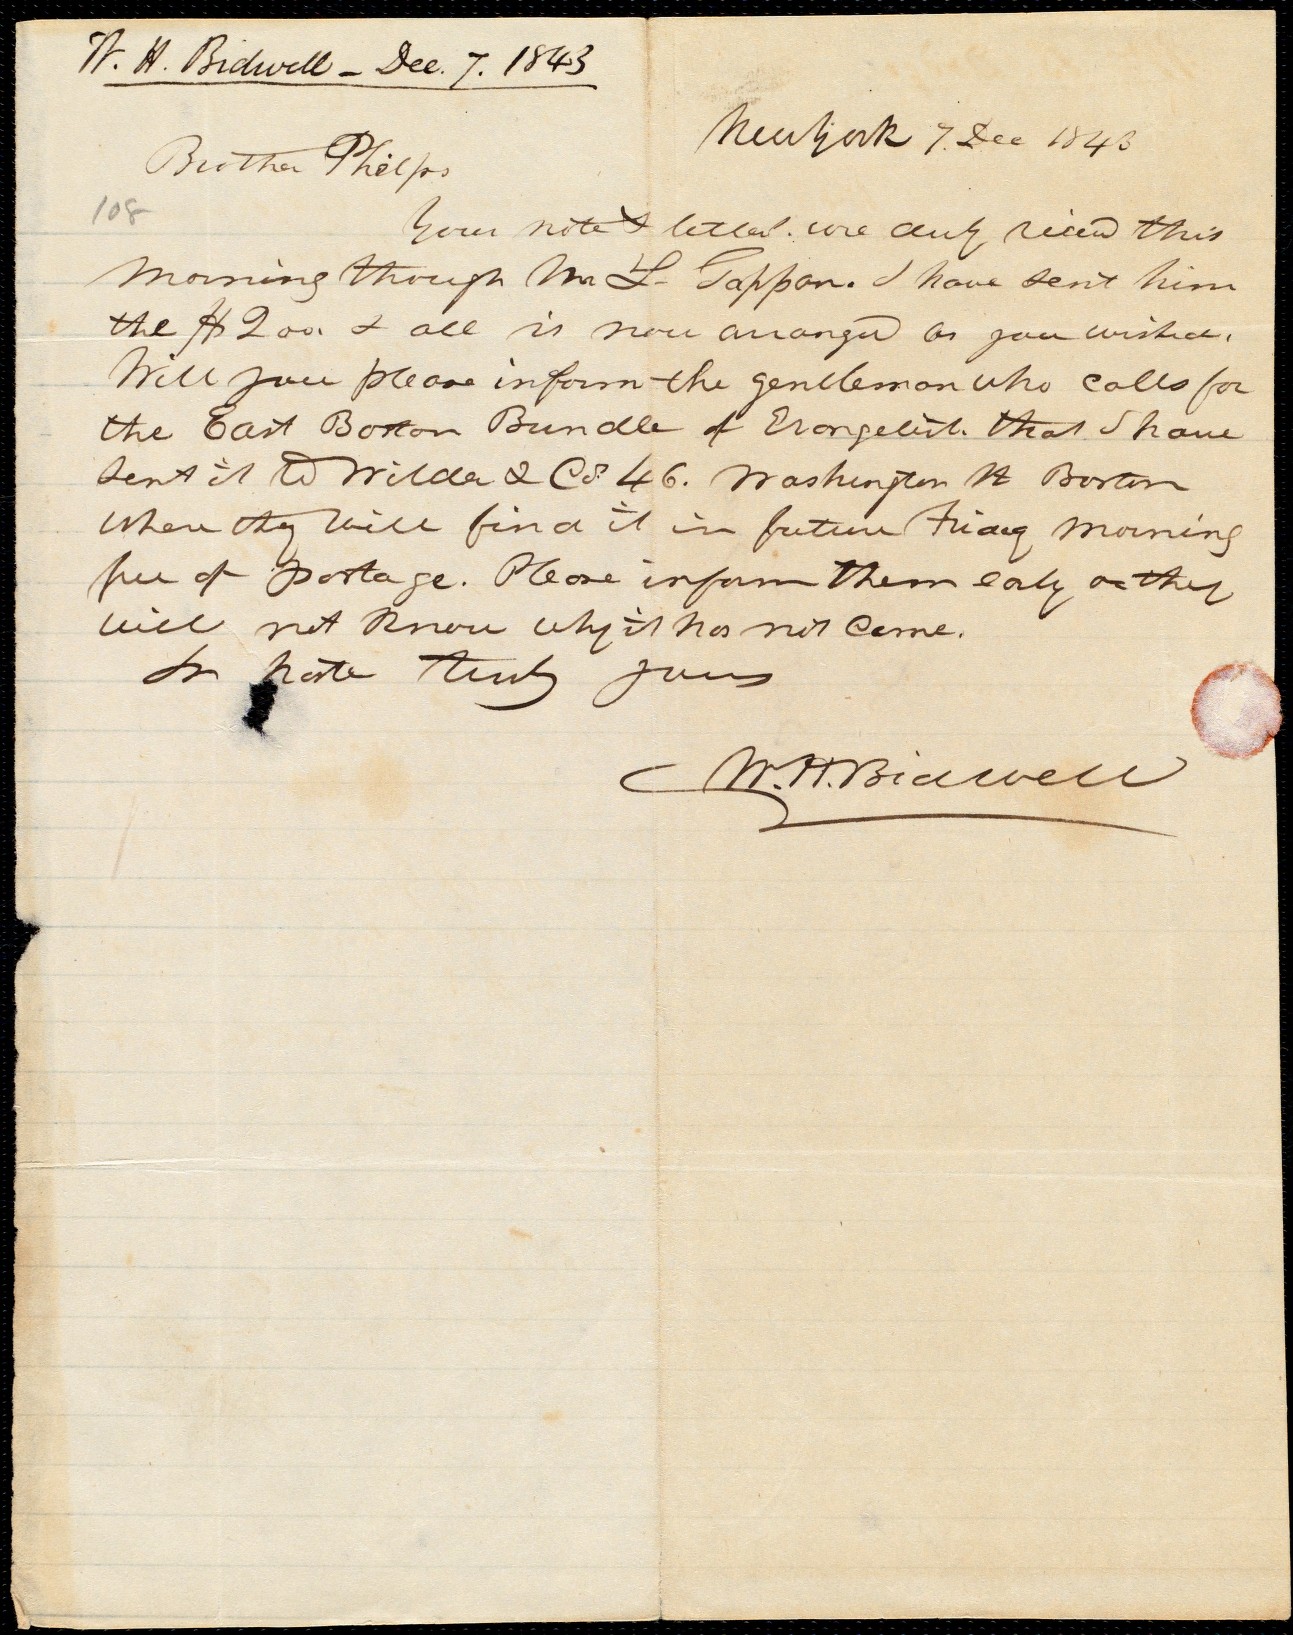 W. H. Bidwell - Dec. 7. 1843
New York 7. Dec 1843
Brother Phelps
108
Your note & letter. were duly recd this
morning through Mr L. Tappan. I have sent him
the $200. & all is now arranged as you wished.
Will you please inform the gentleman who calls for
the East Boston Bundle of Evangelist. that I have
sent it to Wilder & Co. 46. Washington St Boston
where they will find it in future Friday morning
free of postage. Please inform them early as they
will not know why it has not come.
In haste truly yours
W. H. Bidwell